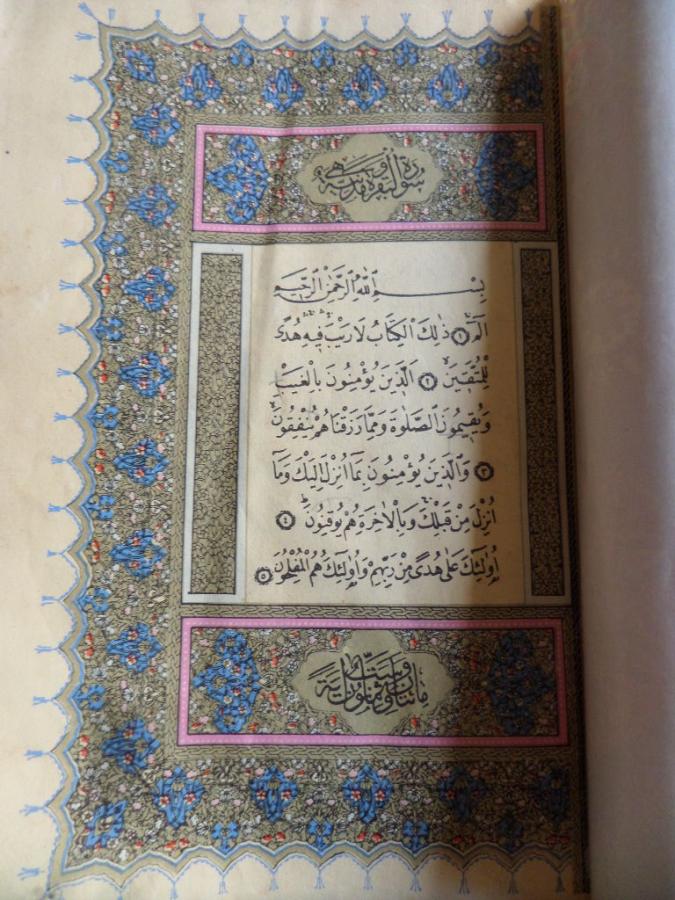 سُورَةُ الْبَقَرَةِ مَدَنِيَّةٌ وَهِيَ
بِسْمِ اللّٰهِ الرَّحْمٰنِ الرَّحٖيمِ
الٓمٓ ﴿١﴾ ذٰلِكَ الْكِتَابُ لَا رَيْبَ فٖيهِ هُدًى
لِلْمُتَّقٖينَ ﴿٢﴾ اَلَّذٖينَ يُؤْمِنُونَ بِالْغَيْبِ
وَيُقٖيمُونَ الصَّلٰوةَ وَمِمَّا رَزَقْنَاهُمْ يُنْفِقُونَ
﴿٣﴾ وَالَّذٖينَ يُؤْمِنُونَ بِمَٓا اُنْزِلَ اِلَيْكَ وَمَٓا
اُنْزِلَ مِنْ قَبْلِكَ وَبِالْاٰخِرَةِ هُمْ يُوقِنُونَ ﴿٤﴾
اُولٰٓئِكَ عَلٰى هُدًى مِنْ رَبِّهِمْ وَاُولٰٓئِكَ هُمُ الْمُفْلِحُونَ ﴿٥﴾
مِائَتَانِ وَسِتٌّ وَثَمَانُونَ اٰيَةً